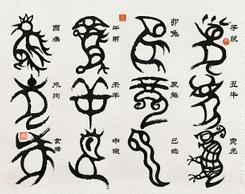 子鼠
丑牛
寅虎
卯兔
辰龍
巳蛇
午馬
未羊
申猴
酉雞
戌狗
亥豬